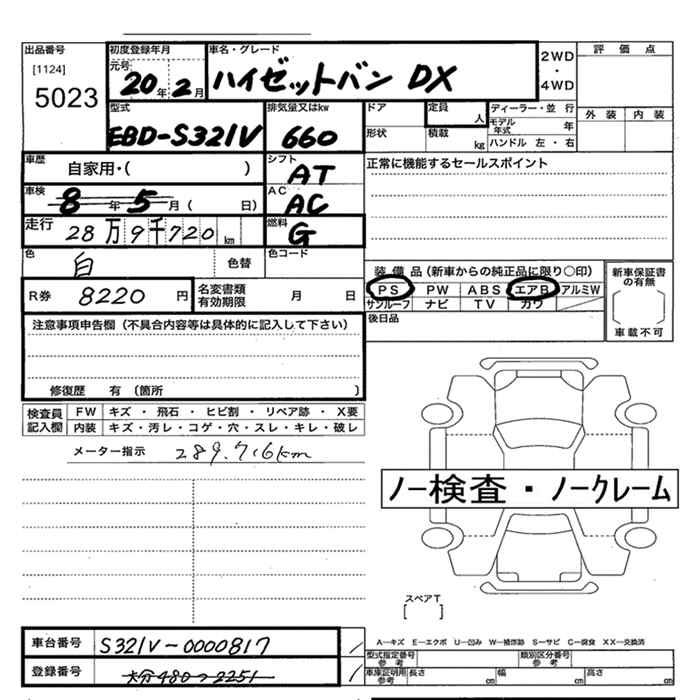 出品番号
[1124]
5023
初度登録年月
元号
20年 2月
車名・グレード
ハイゼットバン DX
2WD
・
4WD
評価点
外装 内装
型式
EBD-S321V
排気量又はkw
660
ドア
形状
定員
人
積載
kg
ディーラー・並行
モデル年式 年
ハンドル 左・右
車歴
自家用・( )
シフト
AT
正常に機能するセールスポイント
車検
8年 5月( 日)
AC
AC
走行
28万9千720km
燃料
G
色
白
色替
色コード
装備品(新車からの純正品に限り○印)
PS PW ABS エアB アルミW
サンルーフ ナビ TV カワ
新車保証書の有無
車載不可
R券 8220円
名変書類有効期限 月 日
後日品
注意事項申告欄(不具合内容等は具体的に記入して下さい)
修復歴 有 (箇所 )
検査員記入欄
FW キズ・飛石・ヒビ割・リペア跡・X要
内装 キズ・汚レ・コゲ・穴・スレ・キレ・破レ
メーター指示 289.716km
ノー検査・ノークレーム
スペアT
[ ]
車台番号 S321V-0000817
登録番号 大分480つ2251
A―キズ E―エクボ U―凹み W―補修跡 S―サビ C―腐食 XX―交換済
型式指定番号参考
類別区分番号参考
車庫証明用参考 長さ cm 幅 cm 高さ cm